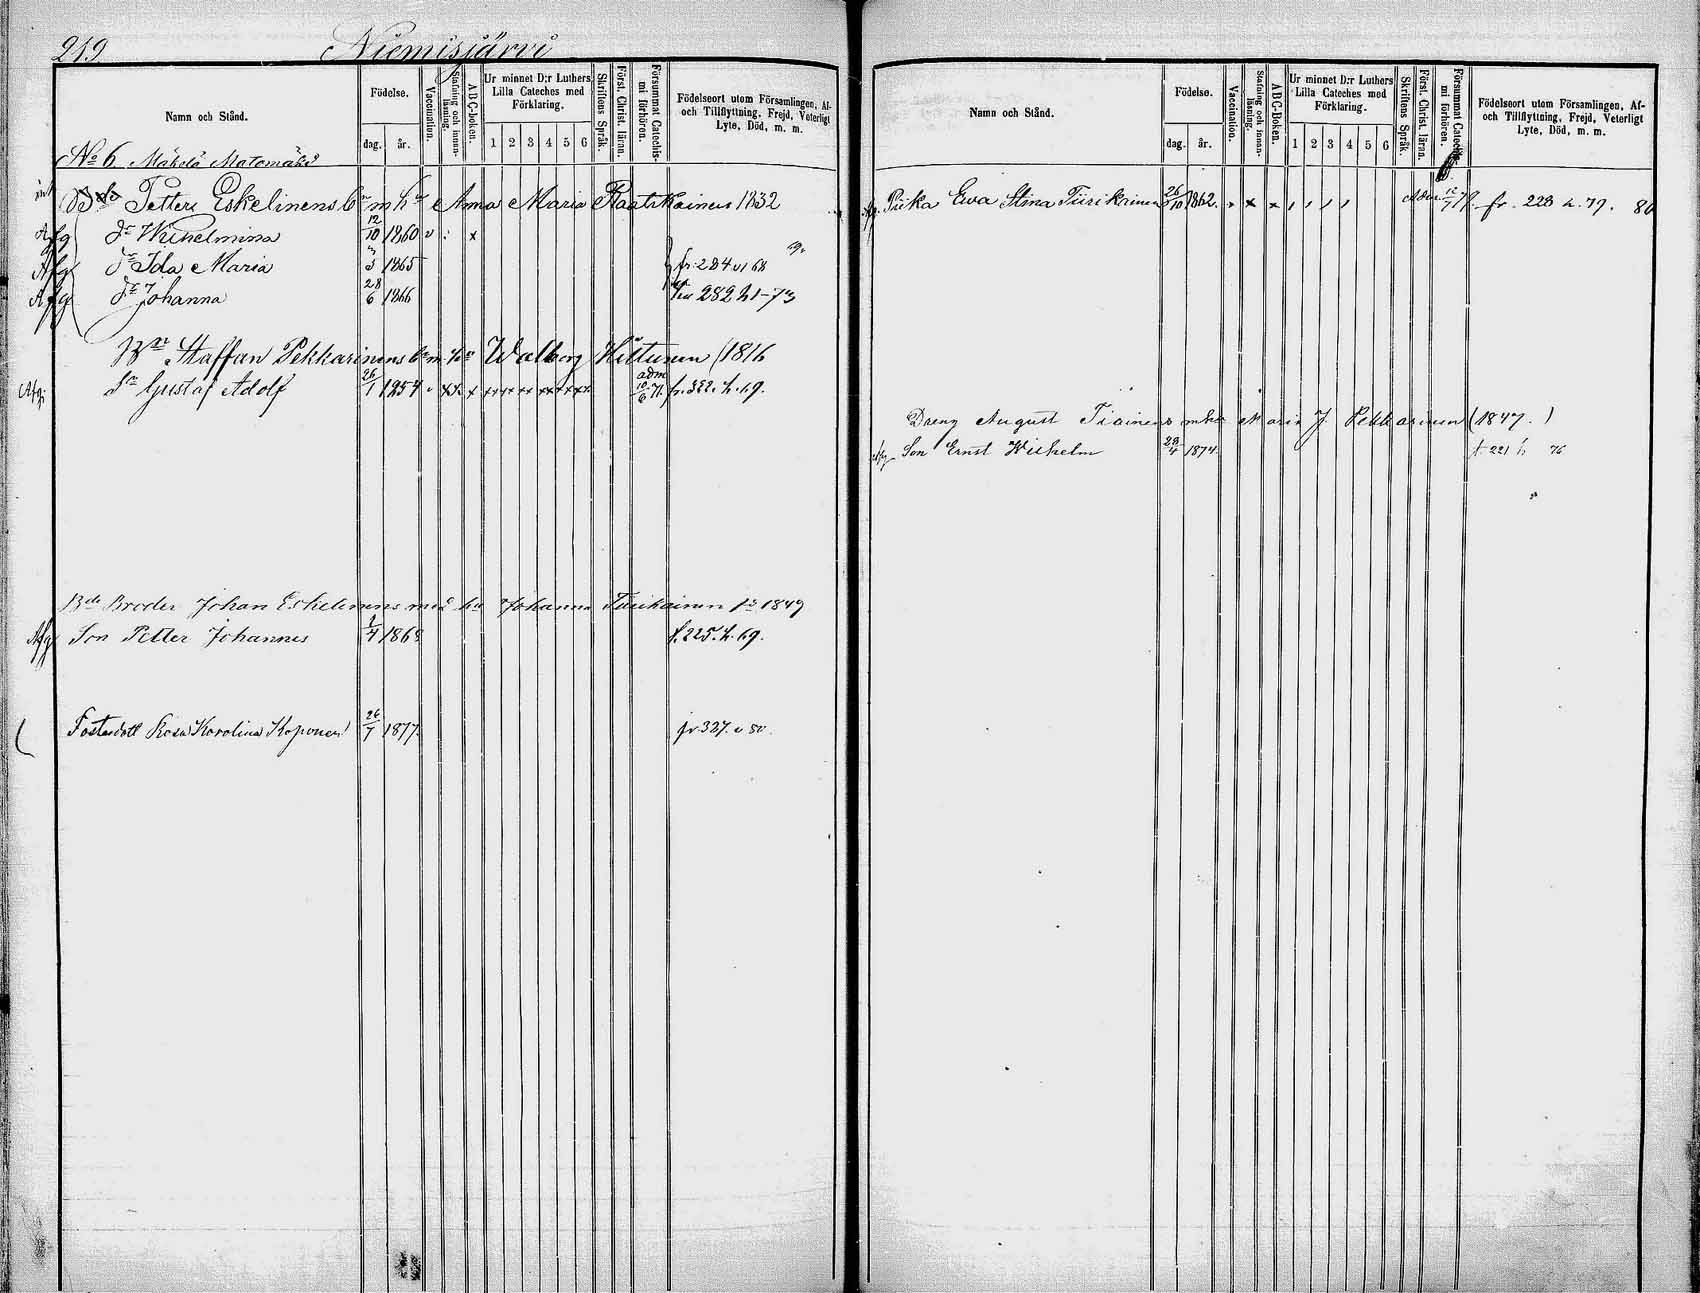 219. Niemisjärvi
Namn och Stånd.
Födelse.
dag.
år.
Vaccination.
Stafning och innan-läsning.
ABC-Boken.
Ur minnet D:r Luthers
Lilla Cateches med
Förklaring.
1 2 3 4 5 6
Skriftens Språk.
Först. Christ. läran.
Försummat Catechis-
mi förhören.
Födelseort utom Församlingen, Af-
och Tillflyttning, Frejd, Veterligt
Lyte, Död, m. m.
No 6 Mäkelä Matomäki
Petter Eskelinens m hu Anna Maria Raatikainen 1832
Afg dr Wilhelmina 12/10 1860
Afg dr Ida Maria 3 1865 fr. 284 v 68
Afg dr Johanna 28/6 1866 282 h 73
Staffan Pekkarinens Walborg Hiltunen (1816
Afg Sn Gustaf Adolf 26/1 1854 adm 10/6 71. fr. 322. h. 69.
Bde Broder Johan Eskelinens med hu Johanna Tiirikainen 1849
Afg Son Petter Johannes 1/4 1868 f. 225. h. 69.
Fosterdott Rosa Karolina Koponen 26/7 1877. fr. 337. v 80.
Namn och Stånd.
Födelse.
dag.
år.
Vaccination.
Stafning och innan-läsning.
ABC-Boken.
Ur minnet D:r Luthers
Lilla Cateches med
Förklaring.
1 2 3 4 5 6
Skriftens Språk.
Först. Christ. läran.
Försummat Catechis-
mi förhören.
Födelseort utom Församlingen, Af-
och Tillflyttning, Frejd, Veterligt
Lyte, Död, m. m.
Afg. Piika Ewa Stina Tiirikainen 26/10 1862. fr. 223 h. 79. 80
Dreng August Tiainens m hu Maria J. Pekkarinen (1847.)
Afg Son Ernst Wilhelm 28/4 1874. f. 221 h 76